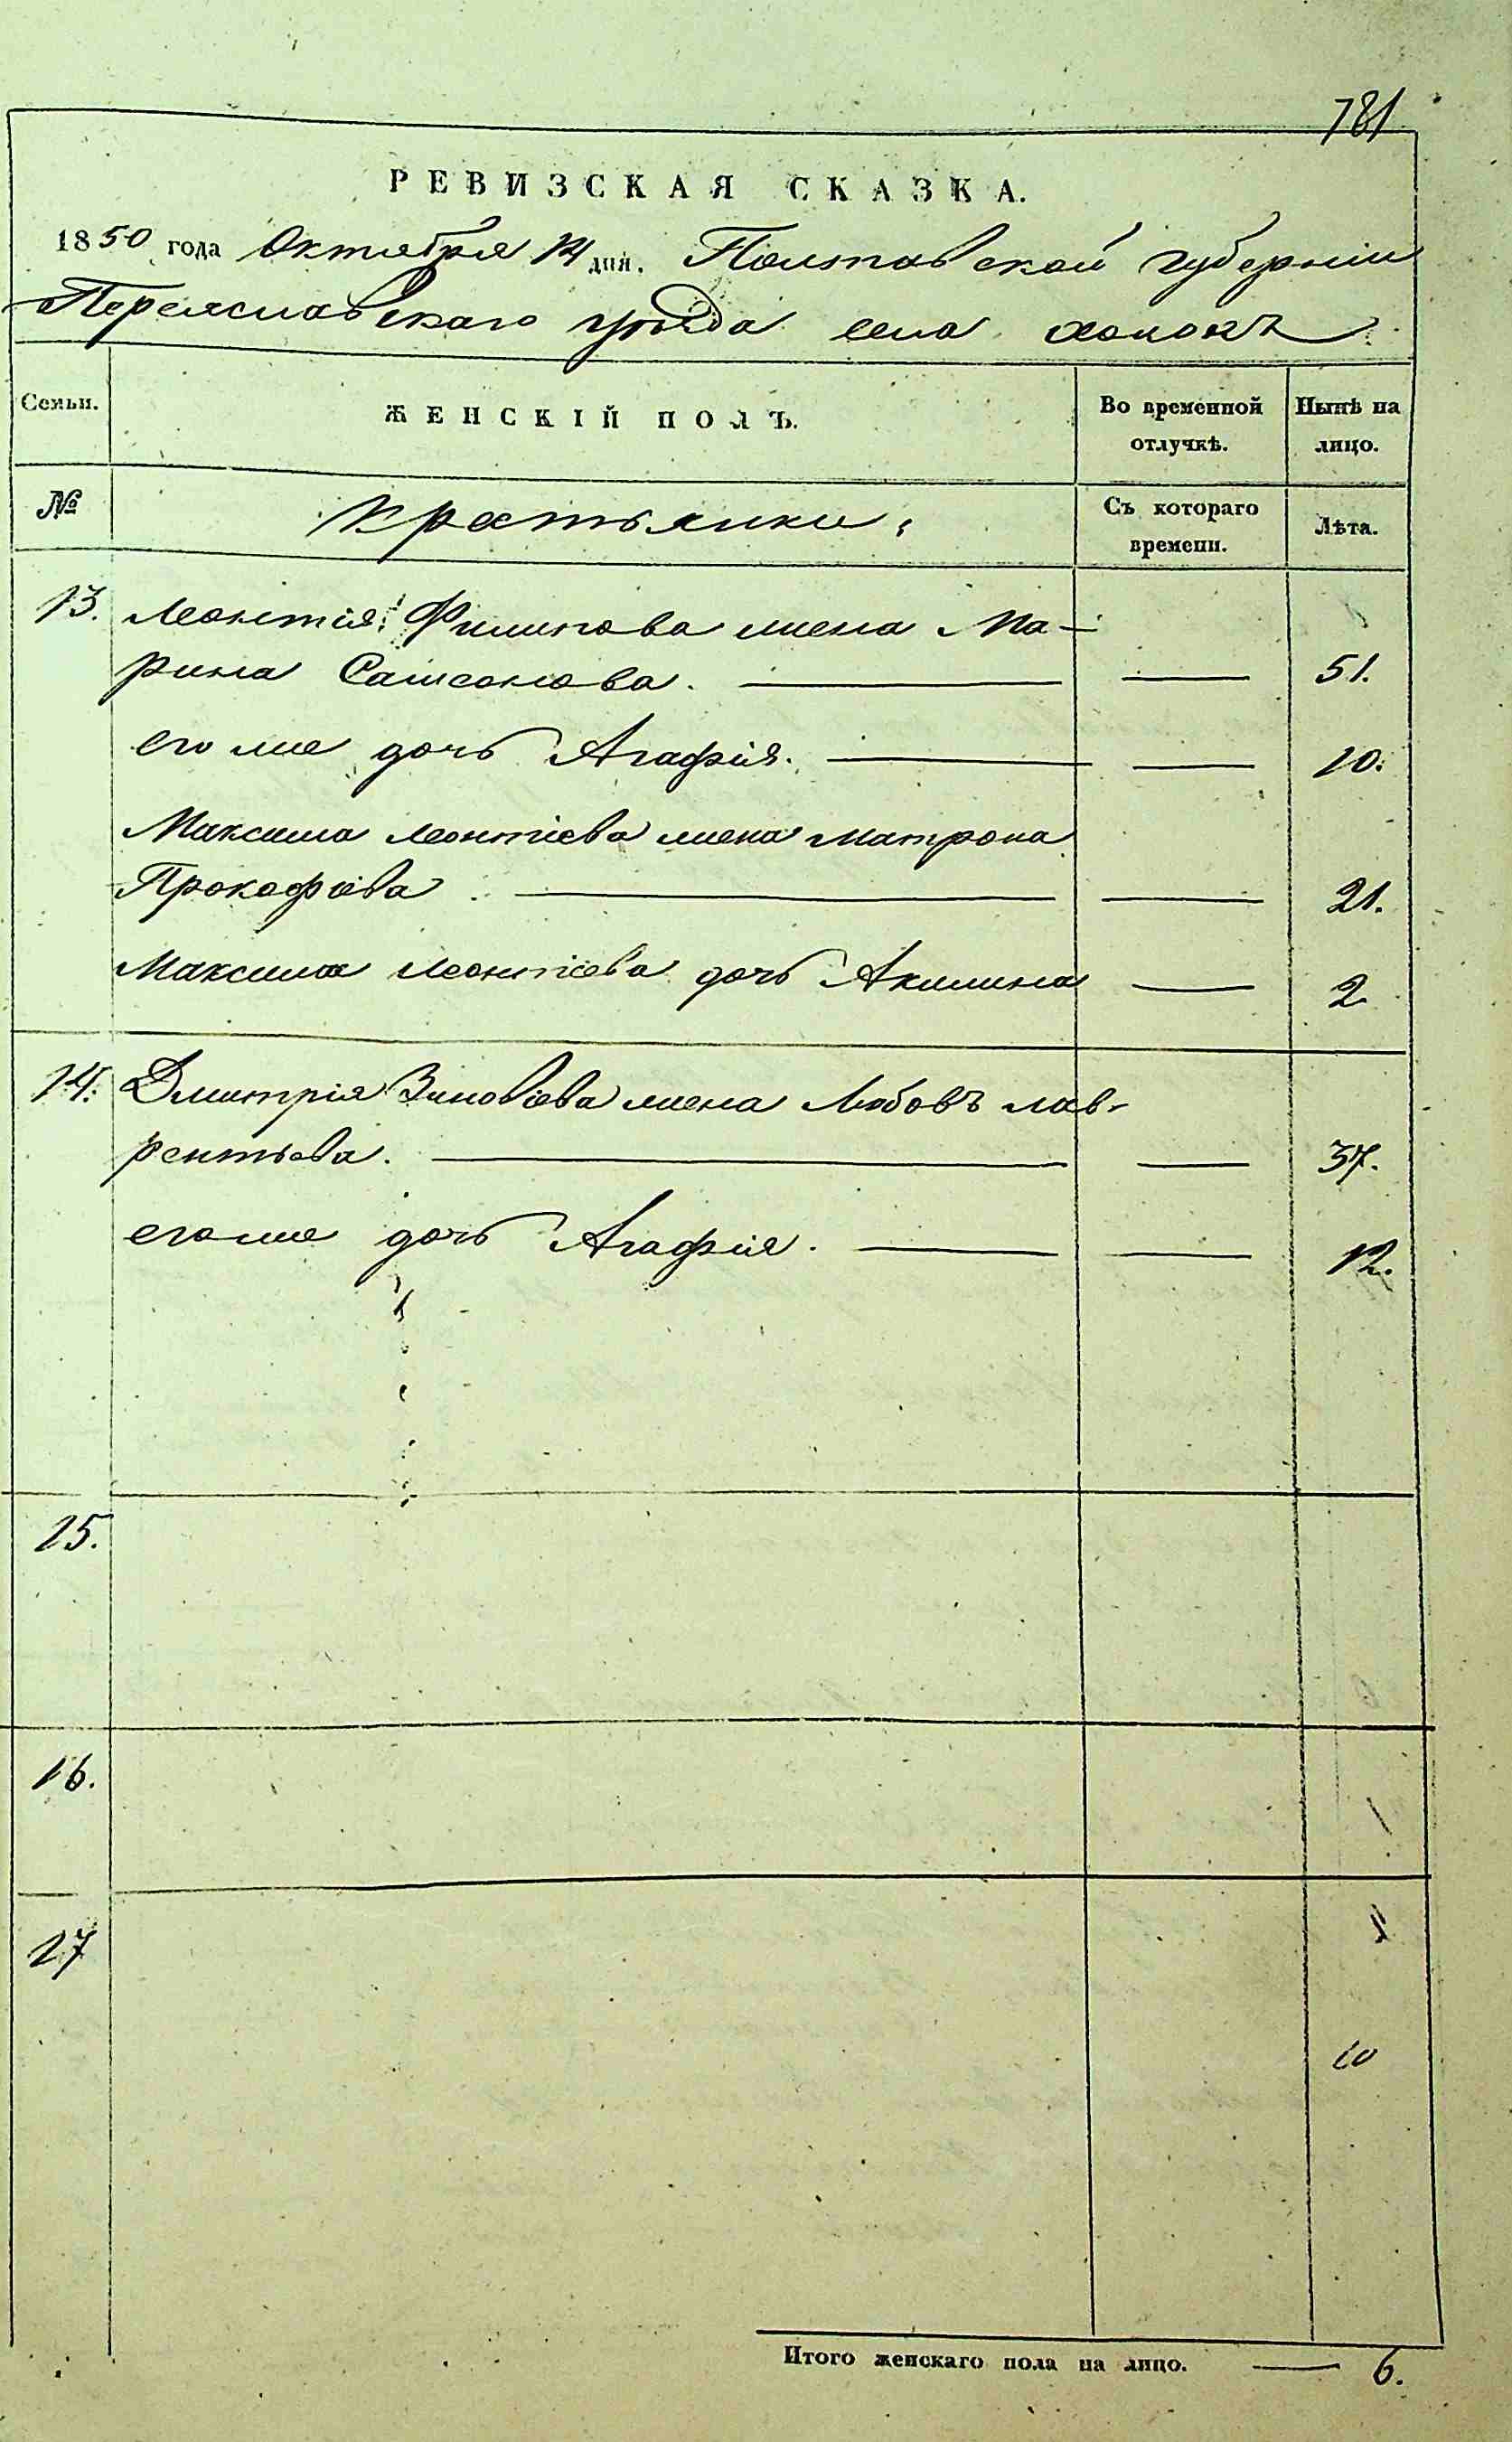 781
РЕВИЗСКАЯ СКАЗКА.
1850 года Октября 14 дня. Полтавской губерніи
Переяславскаго уѣзда села хоцокъ
Семьи. ЖЕНСКІЙ ПОЛЪ. Во временной отлучкѣ. Нынѣ на лицо.
№ крестьянки, Съ котораго времени. Лѣта.
13. Леонтія Филипова жена Ма-
рина Самсонова. 51.
его же дочь Агафія. 10.
Максима Леонтіева жена Матрона
Прокофіева 21.
Максима Леонтіева дочь Акилина 2
14. Дмитрія Зиновіева жена Любовъ лав-
рентьева. 37.
его же дочь Агафія. 12.
15.
16.
17
Итого женскаго пола на лицо. 6.